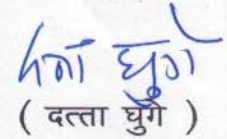 दत्ता घुगे
( दत्ता घुगे )